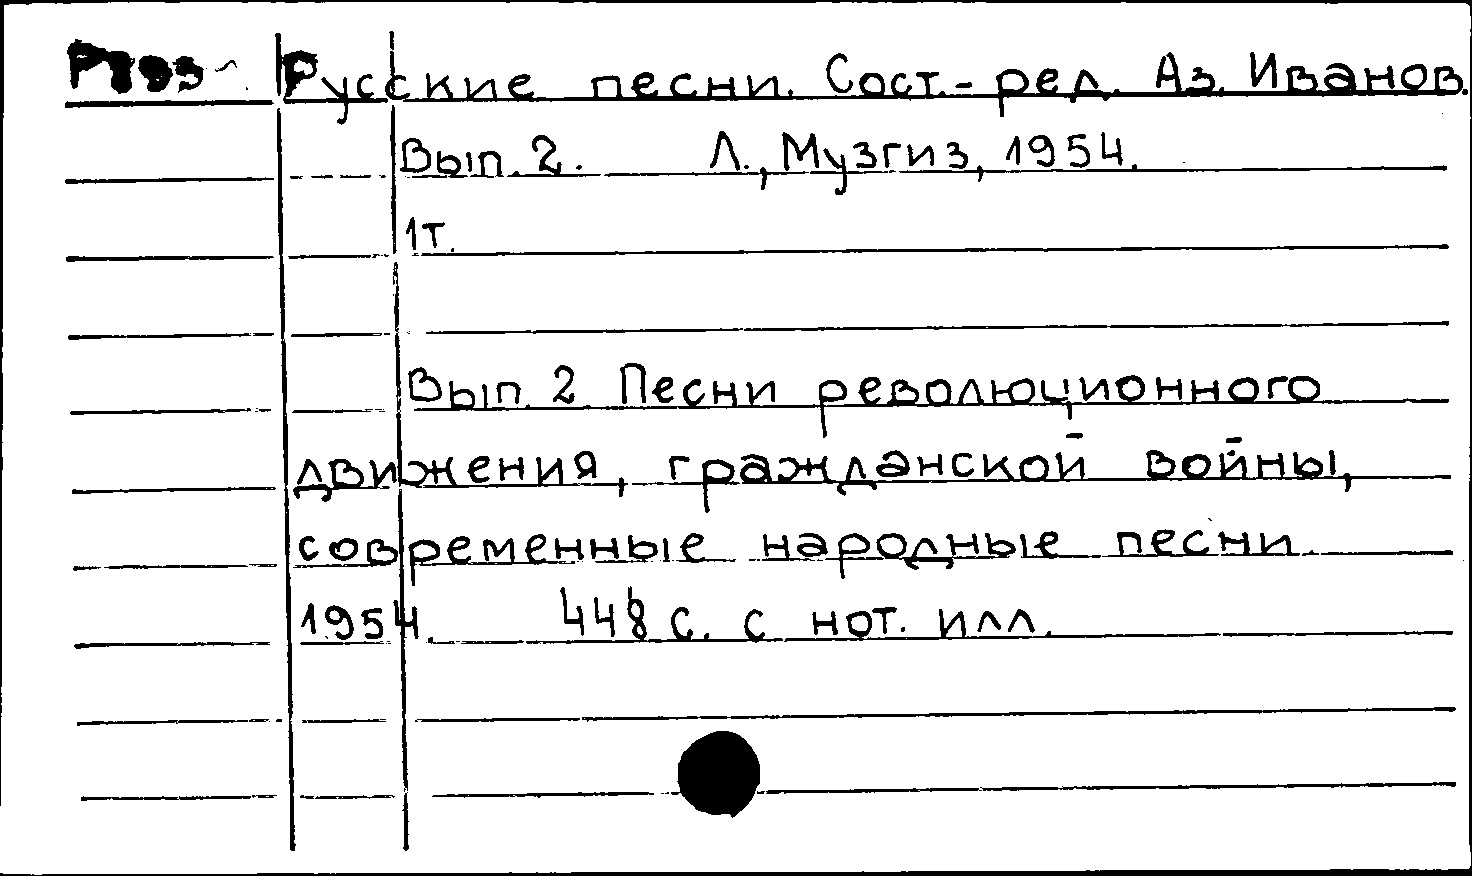 Русские песни. Сост.-ред. Аз. Иванов.
Вып. 2. Л., Музгиз, 1954.
1т.
Вып. 2 Песни революционного
движения, гражданской войны,
современные народные песни.
1954. 448 с. с нот. илл.